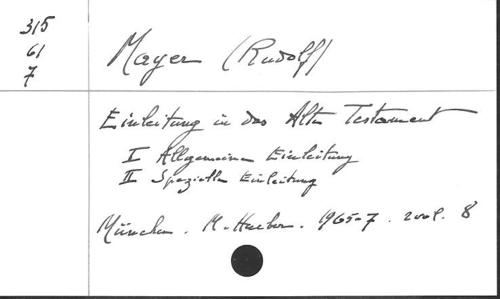 315
61
7
Mayer (Rudolf)
Einleitung in das Alte Testament
I Allgemeine Einleitung
II Spezielle Einleitung
München. M. Hueber. 1965-7. 2 vol. 8